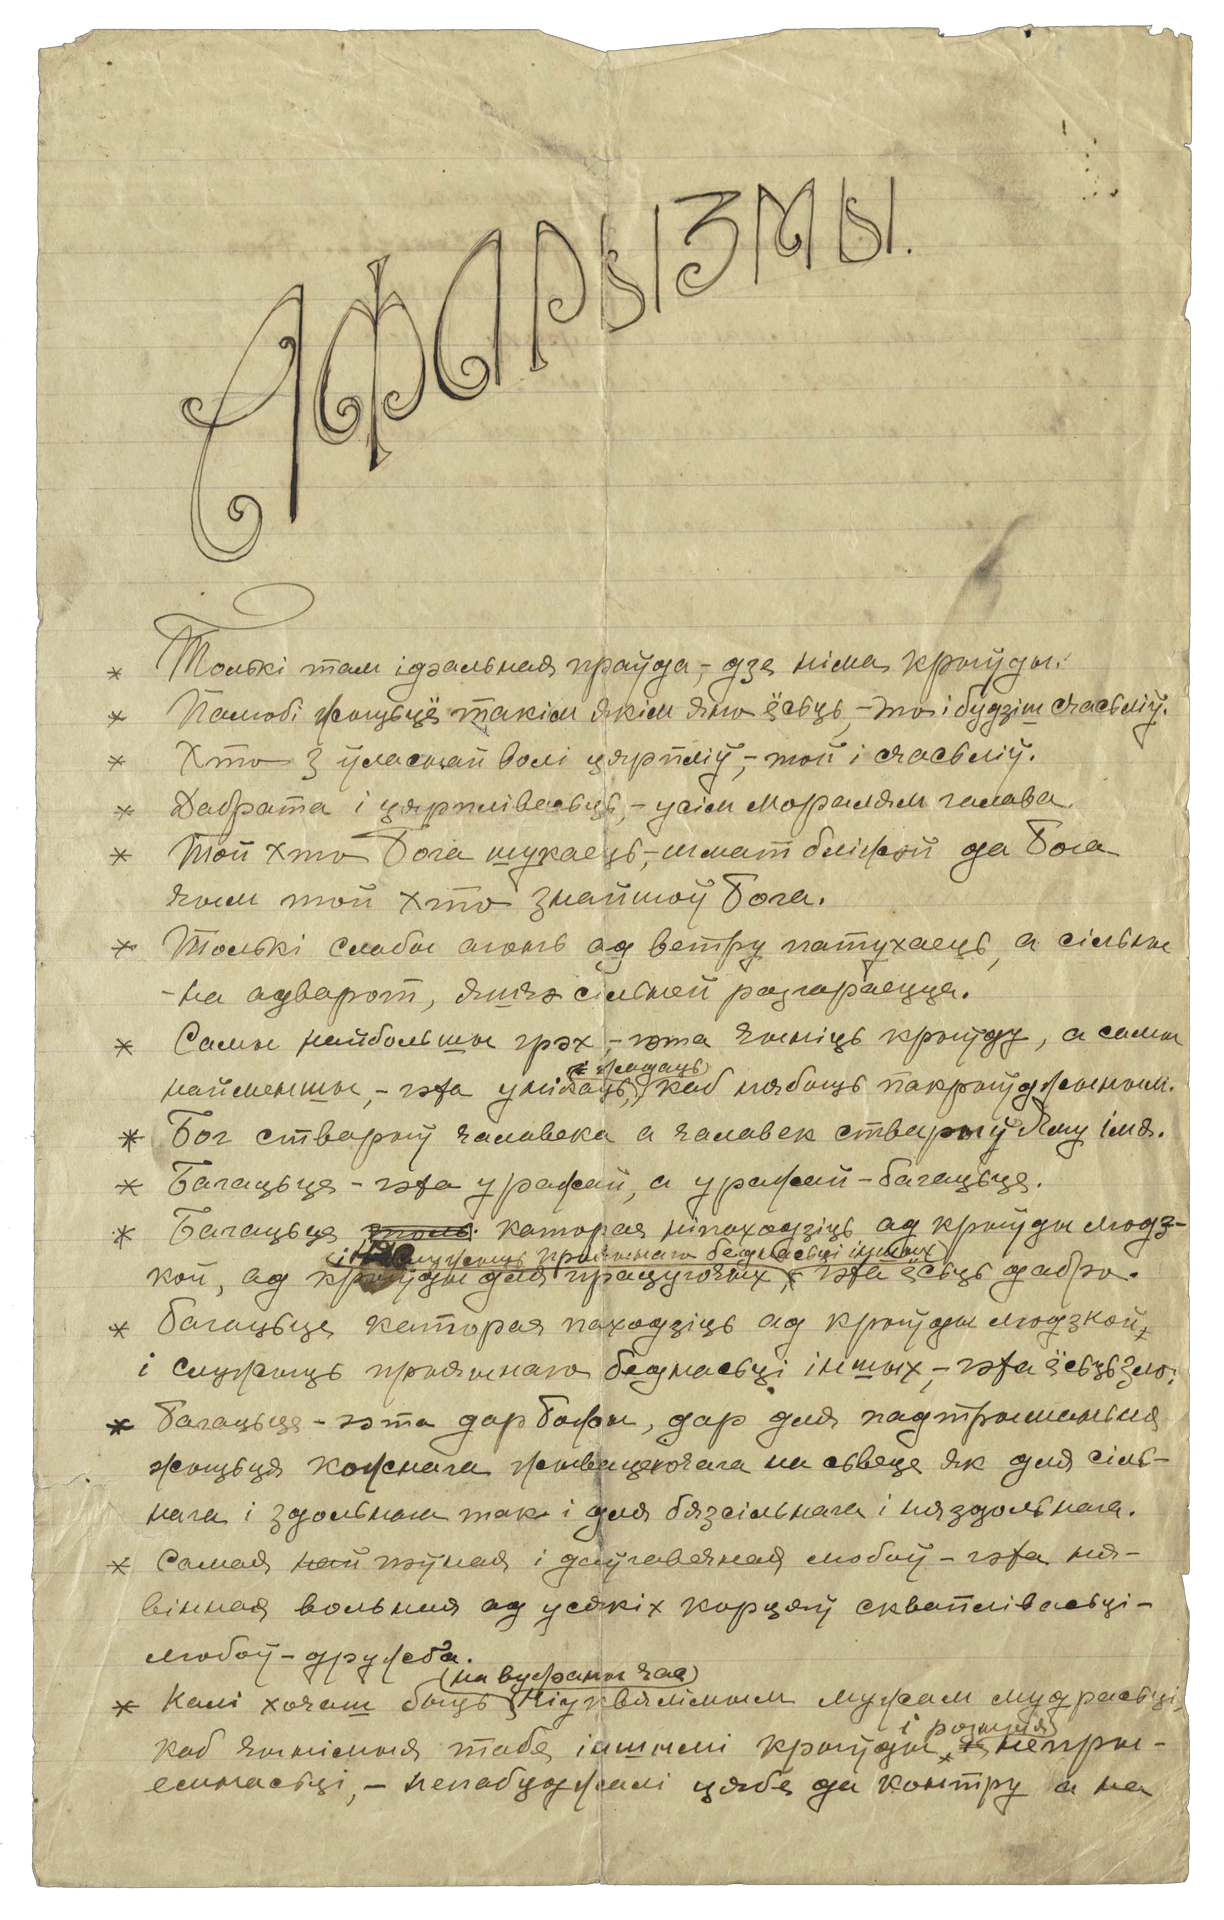 АФАРЫЗМЫ.
* Толькі там ідэальная праўда, - дзе німа крыўды.
* Палюбі жыцьцё такім якім яно ёсьць, - то і будзіш счасьліў.
* Хто з ўласнай волі цярпліў, - той і счасьліў.
* Дабрата і цярплівасьць, - усім моралям галава.
* Той хто Бога шукаець, - шмат бліжэй да Бога
чым той хто знайшоў Бога.
* Толькі слабы агонь ад ветру патухаець, а сільны
- на адварот, яшчэ сільней разгараецца.
* Самы найбольшы грэх, - гэта чыніць крыўду, а самы
і жадаць
найменшы, - гэта унікаць, каб нябыць пакрыўджаным.
* Бог стварыў чалавека а чалавек стварыў Яму імя.
* Багацьце - гэта ураджай, а ураджай - багацьце.
* Багацьце каторая ніпаходзіць ад крыўды людз-
і служыць прыямнага беднасьці іншых
кой, ад крыўды для працуючых, гэта ёсьць дабро.
* Багацьце каторая паходзіць ад крыўды людзкой,
і служыць прыямнаго беднасьці іншых, - гэта ёсьць зло.
* Багацьце - гэта дар божы, дар для падтрыманьня
жыцьця кожнага жывацеючага на сьвеце як для сіль-
нага і здольнага так і для бязсільнага і няздольнага.
* Самая най пэўная і даўгавечная любоў - гэта ня-
вінная вольная ад усякіх корцяў скваплівасьці -
любоў - дружба.
(на вужаны час)
* Калі хочаш быць ніуквялімым мужам мудрасьці,
і розныя
каб чынімыя табе іншымі крыўды, непры-
емнасьці, - непабуджалі цябе да контру а на